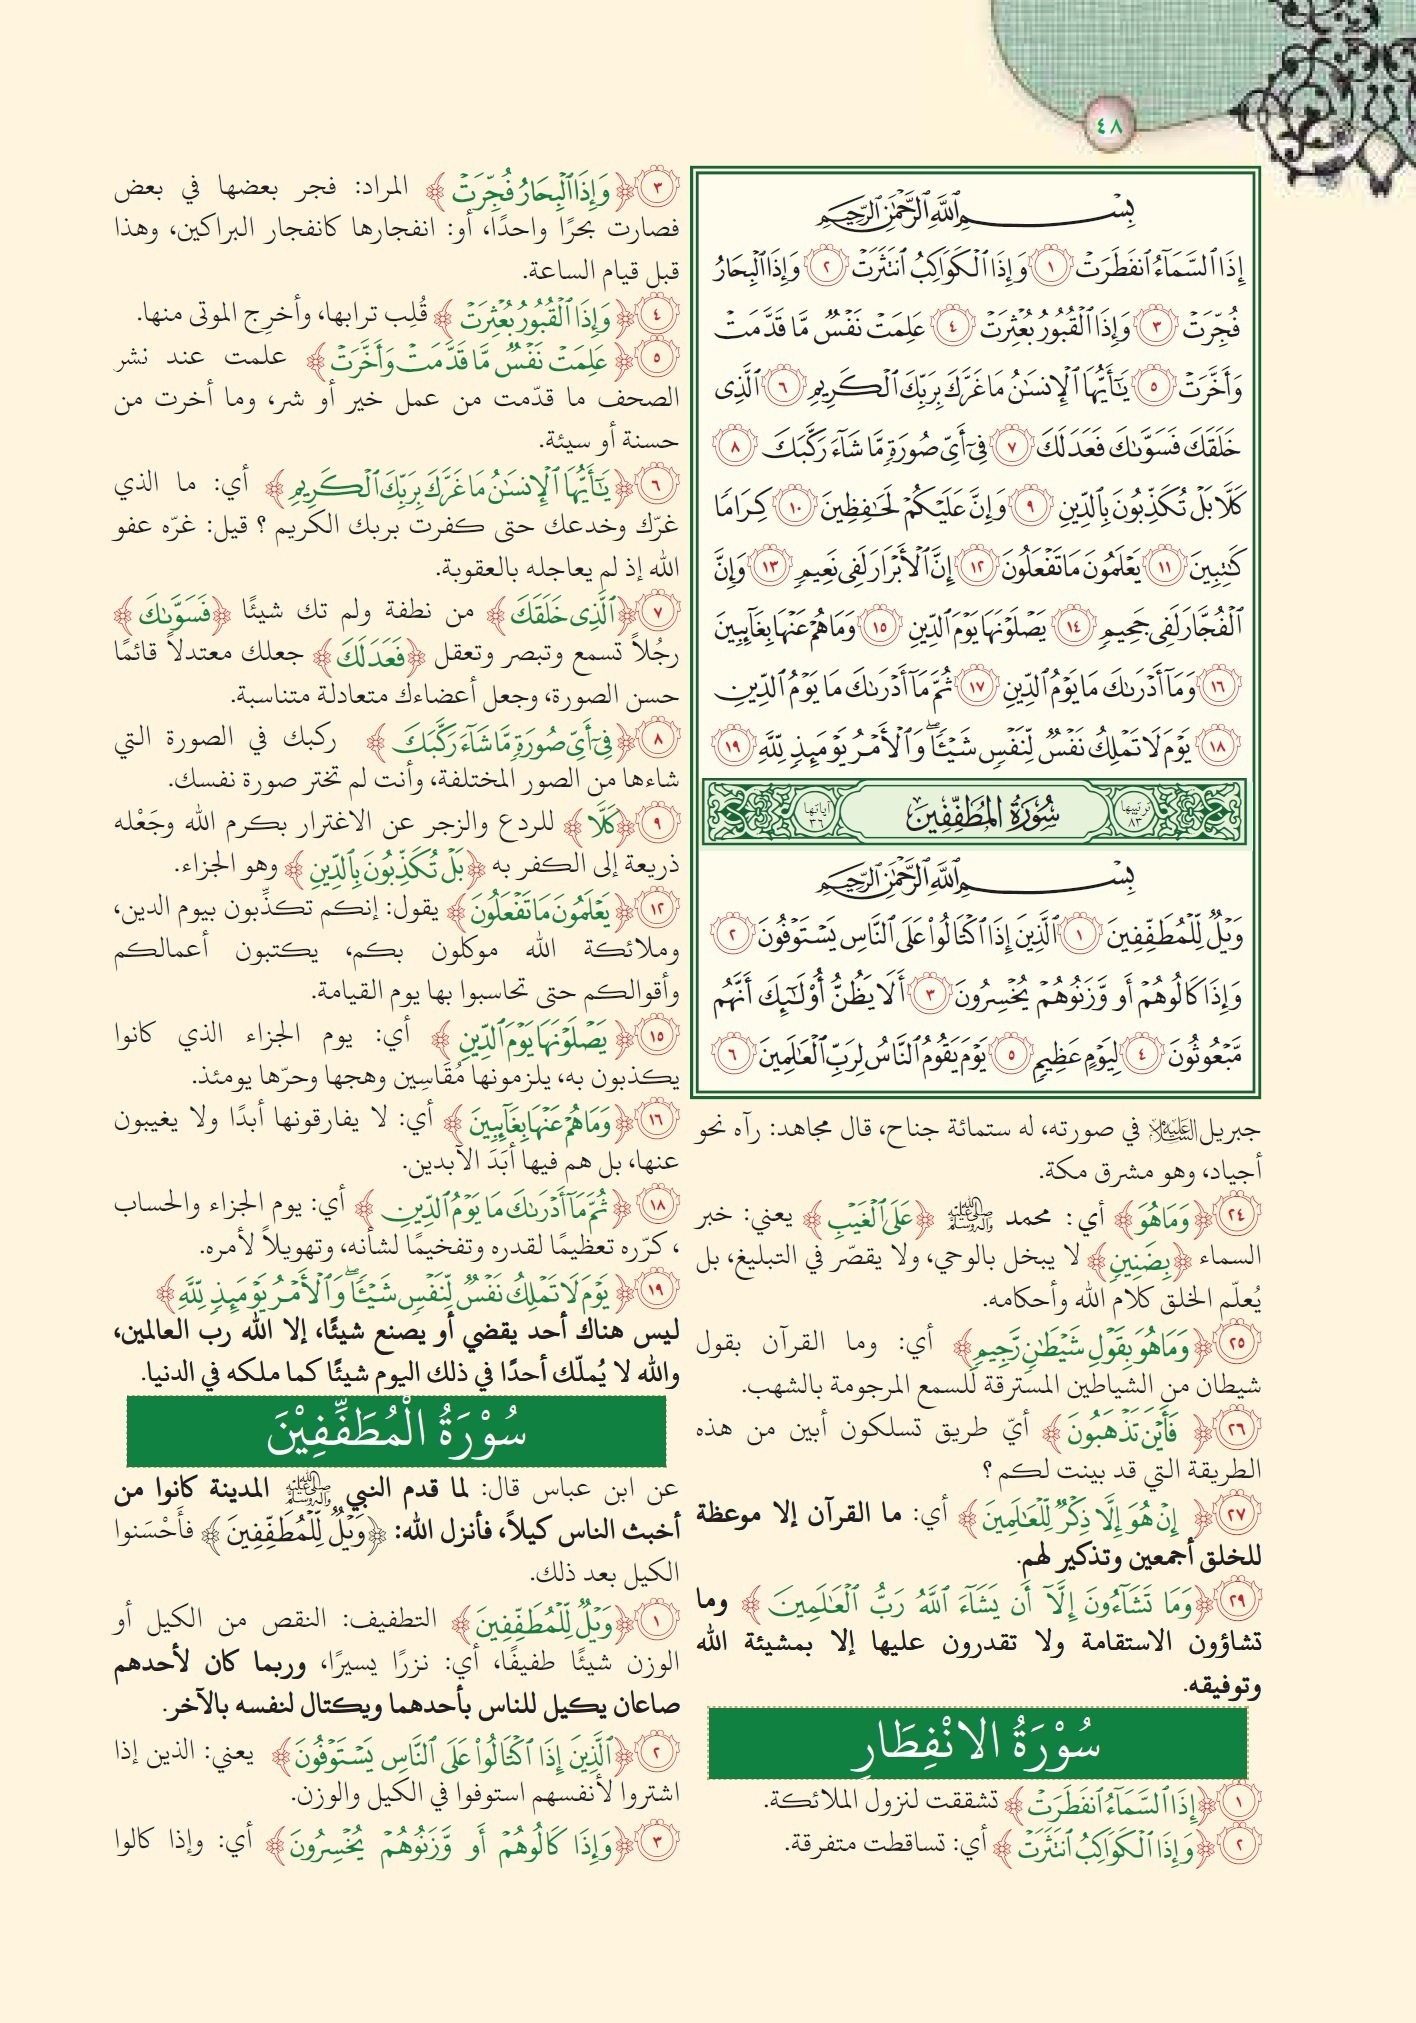 ٤٨
بِسْمِ ٱللَّهِ ٱلرَّحْمَٰنِ ٱلرَّحِيمِ
إِذَا ٱلسَّمَآءُ ٱنفَطَرَتْ ١ وَإِذَا ٱلْكَوَاكِبُ ٱنتَثَرَتْ ٢ وَإِذَا ٱلْبِحَارُ
فُجِّرَتْ ٣ وَإِذَا ٱلْقُبُورُ بُعْثِرَتْ ٤ عَلِمَتْ نَفْسٌ مَّا قَدَّمَتْ
وَأَخَّرَتْ ٥ يَٰٓأَيُّهَا ٱلْإِنسَٰنُ مَا غَرَّكَ بِرَبِّكَ ٱلْكَرِيمِ ٦ ٱلَّذِى
خَلَقَكَ فَسَوَّىٰكَ فَعَدَلَكَ ٧ فِىٓ أَىِّ صُورَةٍ مَّا شَآءَ رَكَّبَكَ ٨
كَلَّا بَلْ تُكَذِّبُونَ بِٱلدِّينِ ٩ وَإِنَّ عَلَيْكُمْ لَحَٰفِظِينَ ١٠ كِرَامًا
كَٰتِبِينَ ١١ يَعْلَمُونَ مَا تَفْعَلُونَ ١٢ إِنَّ ٱلْأَبْرَارَ لَفِى نَعِيمٍ ١٣ وَإِنَّ
ٱلْفُجَّارَ لَفِى جَحِيمٍ ١٤ يَصْلَوْنَهَا يَوْمَ ٱلدِّينِ ١٥ وَمَا هُمْ عَنْهَا بِغَآئِبِينَ
١٦ وَمَآ أَدْرَىٰكَ مَا يَوْمُ ٱلدِّينِ ١٧ ثُمَّ مَآ أَدْرَىٰكَ مَا يَوْمُ ٱلدِّينِ
١٨ يَوْمَ لَا تَمْلِكُ نَفْسٌ لِّنَفْسٍ شَيْـًٔا ۖ وَٱلْأَمْرُ يَوْمَئِذٍ لِّلَّهِ ١٩
ترتيبها ٨٣ سُورَةُ المُطَفِّفِينَ آياتها ٣٦
بِسْمِ ٱللَّهِ ٱلرَّحْمَٰنِ ٱلرَّحِيمِ
وَيْلٌ لِّلْمُطَفِّفِينَ ١ ٱلَّذِينَ إِذَا ٱكْتَالُوا۟ عَلَى ٱلنَّاسِ يَسْتَوْفُونَ ٢
وَإِذَا كَالُوهُمْ أَو وَّزَنُوهُمْ يُخْسِرُونَ ٣ أَلَا يَظُنُّ أُو۟لَٰٓئِكَ أَنَّهُم
مَّبْعُوثُونَ ٤ لِيَوْمٍ عَظِيمٍ ٥ يَوْمَ يَقُومُ ٱلنَّاسُ لِرَبِّ ٱلْعَٰلَمِينَ ٦
جبريل عليه السلام في صورته، له ستمائة جناح، قال مجاهد: رآه نحو
أجياد، وهو مشرق مكة.
٢٤ ﴿وَمَا هُوَ﴾ أي: محمد ﷺ ﴿عَلَى ٱلْغَيْبِ﴾ يعني: خبر
السماء ﴿بِضَنِينٍ﴾ لا يبخل بالوحي، ولا يقصّر في التبليغ، بل
يُعلّم الخلق كلام الله وأحكامه.
٢٥ ﴿وَمَا هُوَ بِقَوْلِ شَيْطَٰنٍ رَّجِيمٍ﴾ أي: وما القرآن بقول
شيطان من الشياطين المسترقة للسمع المرجومة بالشهب.
٢٦ ﴿فَأَيْنَ تَذْهَبُونَ﴾ أيّ طريق تسلكون أبين من هذه
الطريقة التي قد بينت لكم ؟
٢٧ ﴿إِنْ هُوَ إِلَّا ذِكْرٌ لِّلْعَٰلَمِينَ﴾ أي: ما القرآن إلا موعظة
للخلق أجمعين وتذكير لهم.
٢٩ ﴿وَمَا تَشَآءُونَ إِلَّآ أَن يَشَآءَ ٱللَّهُ رَبُّ ٱلْعَٰلَمِينَ﴾ وما
تشاؤون الاستقامة ولا تقدرون عليها إلا بمشيئة الله
وتوفيقه.
سُوْرَةُ الانْفِطَارِ
١ ﴿إِذَا ٱلسَّمَآءُ ٱنفَطَرَتْ﴾ تشققت لنزول الملائكة.
٢ ﴿وَإِذَا ٱلْكَوَاكِبُ ٱنتَثَرَتْ﴾ أي: تساقطت متفرقة.
٣ ﴿وَإِذَا ٱلْبِحَارُ فُجِّرَتْ﴾ المراد: فجر بعضها في بعض
فصارت بحرًا واحدًا، أو: انفجارها كانفجار البراكين، وهذا
قبل قيام الساعة.
٤ ﴿وَإِذَا ٱلْقُبُورُ بُعْثِرَتْ﴾ قُلِب ترابها، وأخرِج الموتى منها.
٥ ﴿عَلِمَتْ نَفْسٌ مَّا قَدَّمَتْ وَأَخَّرَتْ﴾ علمت عند نشر
الصحف ما قدّمت من عمل خير أو شر، وما أخرت من
حسنة أو سيئة.
٦ ﴿يَٰٓأَيُّهَا ٱلْإِنسَٰنُ مَا غَرَّكَ بِرَبِّكَ ٱلْكَرِيمِ﴾ أي: ما الذي
غرّك وخدعك حتى كفرت بربك الكريم ؟ قيل: غرّه عفو
الله إذ لم يعاجله بالعقوبة.
٧ ﴿ٱلَّذِى خَلَقَكَ﴾ من نطفة ولم تك شيئًا ﴿فَسَوَّىٰكَ﴾
رجُلاً تسمع وتبصر وتعقل ﴿فَعَدَلَكَ﴾ جعلك معتدلاً قائمًا
حسن الصورة، وجعل أعضاءك متعادلة متناسبة.
٨ ﴿فِىٓ أَىِّ صُورَةٍ مَّا شَآءَ رَكَّبَكَ﴾ ركبك في الصورة التي
شاءها من الصور المختلفة، وأنت لم تختر صورة نفسك.
٩ ﴿كَلَّا﴾ للردع والزجر عن الاغترار بكرم الله وجَعْله
ذريعة إلى الكفر به ﴿بَلْ تُكَذِّبُونَ بِٱلدِّينِ﴾ وهو الجزاء.
١٢ ﴿يَعْلَمُونَ مَا تَفْعَلُونَ﴾ يقول: إنكم تكذِّبون بيوم الدين،
وملائكة الله موكلون بكم، يكتبون أعمالكم
وأقوالكم حتى تحاسبوا بها يوم القيامة.
١٥ ﴿يَصْلَوْنَهَا يَوْمَ ٱلدِّينِ﴾ أي: يوم الجزاء الذي كانوا
يكذبون به، يلزمونها مُقَاسِين وهجها وحرّها يومئذ.
١٦ ﴿وَمَا هُمْ عَنْهَا بِغَآئِبِينَ﴾ أي: لا يفارقونها أبدًا ولا يغيبون
عنها، بل هم فيها أبَدَ الآبدين.
١٨ ﴿ثُمَّ مَآ أَدْرَىٰكَ مَا يَوْمُ ٱلدِّينِ﴾ أي: يوم الجزاء والحساب
، كرّره تعظيمًا لقدره وتفخيمًا لشأنه، وتهويلاً لأمره.
١٩ ﴿يَوْمَ لَا تَمْلِكُ نَفْسٌ لِّنَفْسٍ شَيْـًٔا ۖ وَٱلْأَمْرُ يَوْمَئِذٍ لِّلَّهِ﴾
ليس هناك أحد يقضي أو يصنع شيئًا، إلا الله رب العالمين،
والله لا يُملّك أحدًا في ذلك اليوم شيئًا كما ملكه في الدنيا.
سُوْرَةُ الْمُطَفِّفِيْنَ
عن ابن عباس قال: لما قدم النبي ﷺ المدينة كانوا من
أخبث الناس كيلاً، فأنزل الله: ﴿وَيْلٌ لِّلْمُطَفِّفِينَ﴾ فأَحْسَنوا
الكيل بعد ذلك.
١ ﴿وَيْلٌ لِّلْمُطَفِّفِينَ﴾ التطفيف: النقص من الكيل أو
الوزن شيئًا طفيفًا، أي: نزرًا يسيرًا، وربما كان لأحدهم
صاعان يكيل للناس بأحدهما ويكتال لنفسه بالآخر.
٢ ﴿ٱلَّذِينَ إِذَا ٱكْتَالُوا۟ عَلَى ٱلنَّاسِ يَسْتَوْفُونَ﴾ يعني: الذين إذا
اشتروا لأنفسهم استوفوا في الكيل والوزن.
٣ ﴿وَإِذَا كَالُوهُمْ أَو وَّزَنُوهُمْ يُخْسِرُونَ﴾ أي: وإذا كالوا